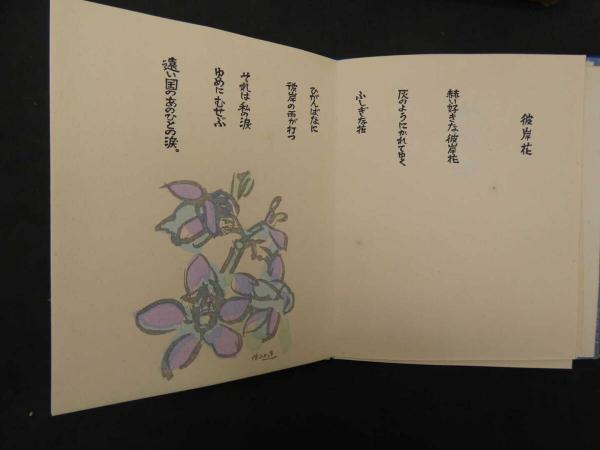 彼岸花
赫い好きな彼岸花
灰のようにかれてゆく
ふしぎな花
ひがんばなに
彼岸の雨が打つ
それは私の涙
ゆめにむせぶ
遠い国のあのひとの涙。